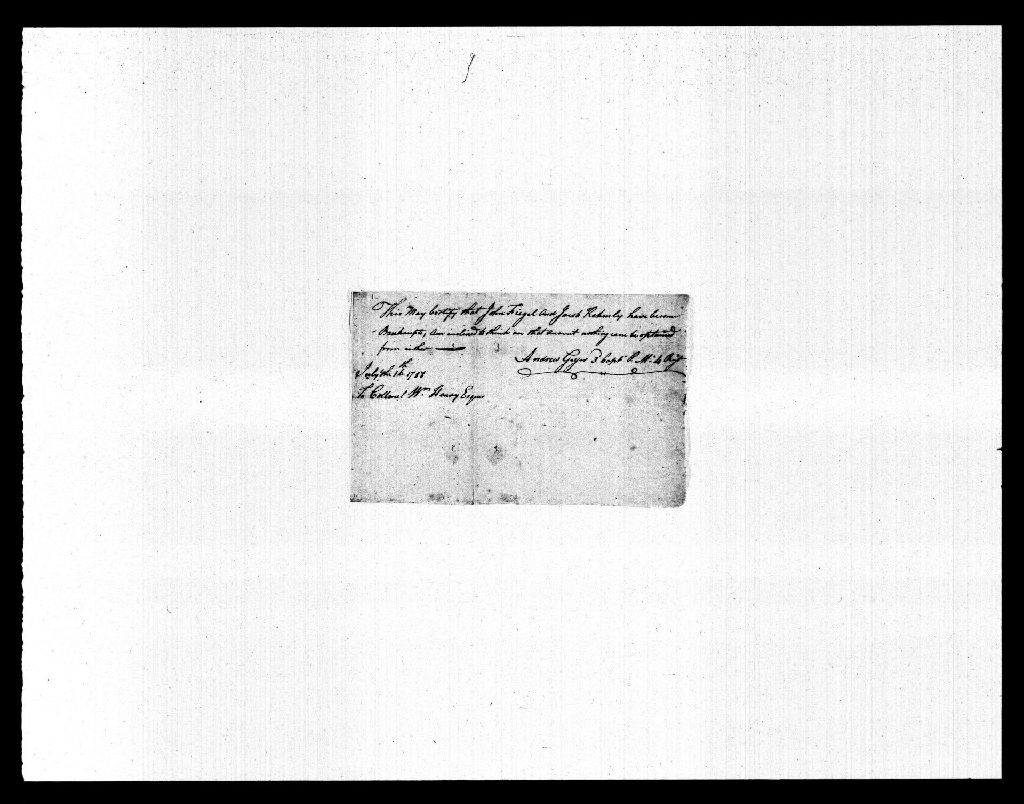 This May Certify, that John Friegel and Jacob have become
Bankrupts, am inclined to think on that account nothing can be optained
from either
Andrew Geyer 3 Capt P. M. 4
July the 14th 1788
To Collonel Wm Henry Esqur